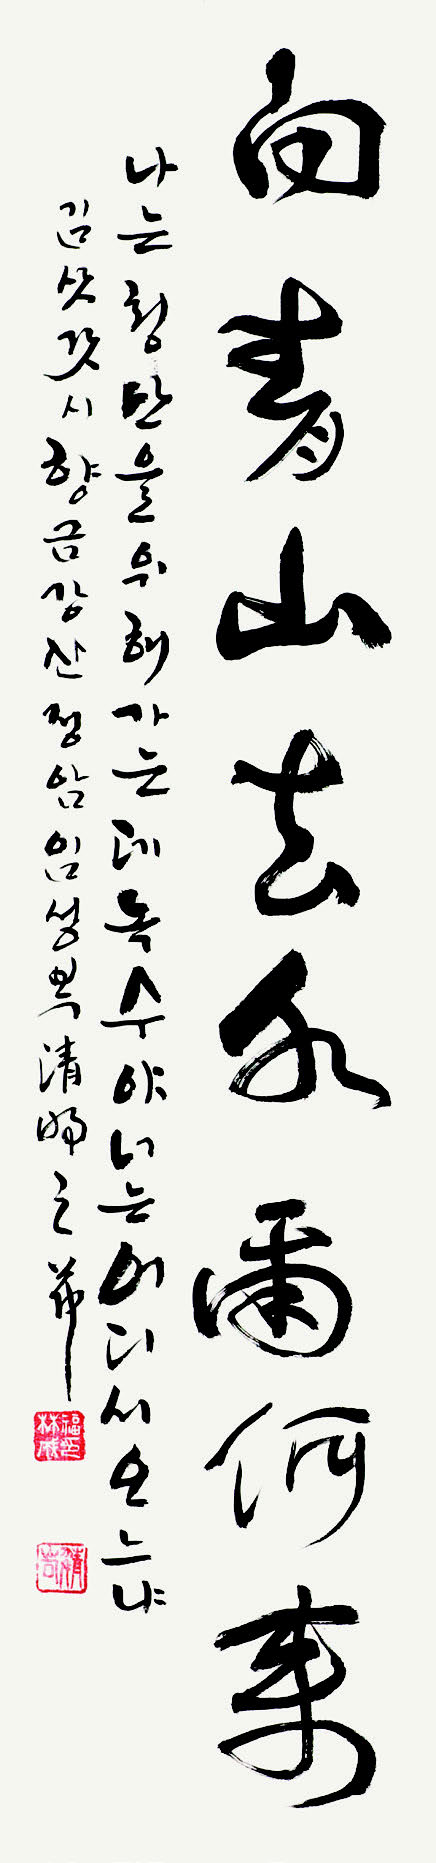 向青山去水爾何來
나는 청산을 위해 가는데 녹수야 너는 어디서 오느냐
김삿갓 시 향금강산 정암 임성복 清明之節